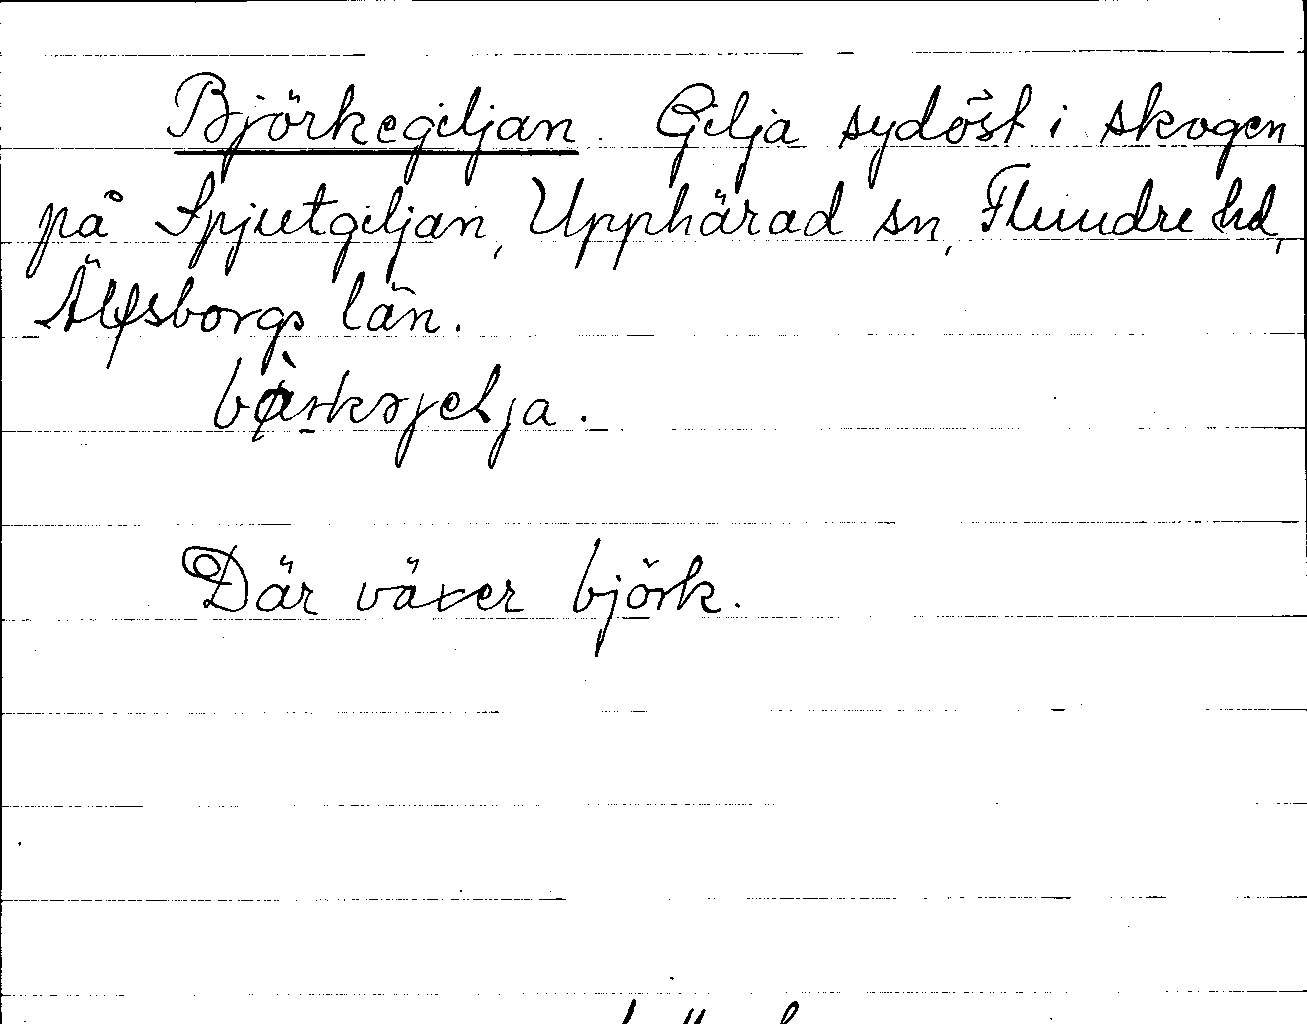 Björkegiljan. Gilja sydöst i skogen
på Spjutgiljan, Upphärad sn, Flundre hd,
Älfsborgs län.
Där växer björk.